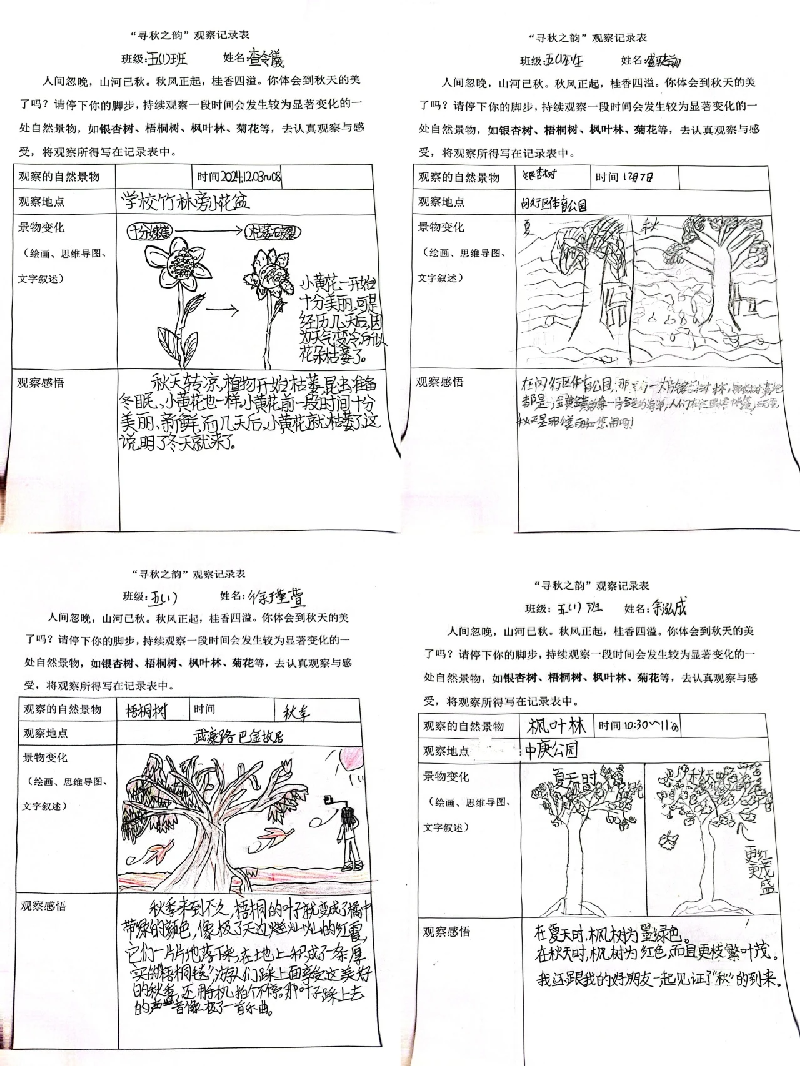 “寻秋之韵”观察记录表
班级:五(1)班 姓名:
人间忽晚，山河已秋。秋风正起，桂香四溢。你体会到秋天的美
了吗？请停下你的脚步，持续观察一段时间会发生较为显著变化的一
处自然景物，如银杏树、梧桐树、枫叶林、菊花等，去认真观察与感
受，将观察所得写在记录表中。
观察的自然景物 时间 2024.12.03~08
观察地点 学校竹林旁小花盆
景物变化
（绘画、思维导图、
文字叙述）
十分
小黄花一开始
十分美丽,可是
经历几天后,因
为天气变冷,所以
花朵枯萎了。
观察感悟
秋天转凉,植物开始枯萎,昆虫准备
冬眠、小黄花也一样。小黄花前一段时间十分
美丽、新鲜,而几天后,小黄花就枯萎了,这
说明了冬天就来了。
“寻秋之韵”观察记录表
班级:五(1)班 姓名:
人间忽晚，山河已秋。秋风正起，桂香四溢。你体会到秋天的美
了吗？请停下你的脚步，持续观察一段时间会发生较为显著变化的一
处自然景物，如银杏树、梧桐树、枫叶林、菊花等，去认真观察与感
受，将观察所得写在记录表中。
观察的自然景物 银杏树 时间 12月7日
观察地点 闵行区体育公园
景物变化
（绘画、思维导图、
文字叙述）
夏 秋
观察感悟
在闵行区体育公园,那里有一大片银杏树林,
都是
“寻秋之韵”观察记录表
班级:五(1) 姓名:徐瑾萱
人间忽晚，山河已秋。秋风正起，桂香四溢。你体会到秋天的美
了吗？请停下你的脚步，持续观察一段时间会发生较为显著变化的一
处自然景物，如银杏树、梧桐树、枫叶林、菊花等，去认真观察与感
受，将观察所得写在记录表中。
观察的自然景物 梧桐树 时间 秋季
观察地点 武康路巴金故居
景物变化
（绘画、思维导图、
文字叙述）
观察感悟
秋季来到不久,梧桐的叶子就变成了橘中
带绿的颜色,像极了天边灿灿的红霞,
它们一片片地落下来,在地上积成了一条厚
实的“梧桐毯”,游人们踩上面享受这美好
的秋意,还用相机拍个不停。那叶子踩上去
的声音像极了一首乐曲。
“寻秋之韵”观察记录表
班级:五(1)班 姓名:成
人间忽晚，山河已秋。秋风正起，桂香四溢。你体会到秋天的美
了吗？请停下你的脚步，持续观察一段时间会发生较为显著变化的一
处自然景物，如银杏树、梧桐树、枫叶林、菊花等，去认真观察与感
受，将观察所得写在记录表中。
观察的自然景物 枫叶林 时间 10:30~11:
观察地点 中庚公园
景物变化
（绘画、思维导图、
文字叙述）
夏天时 秋天时
更红
更茂
盛
观察感悟
在夏天时,枫树为墨绿色。
在秋天时,枫树为红色,而且更枝繁叶茂。
我还跟我的好朋友一起见证了“秋”的到来。